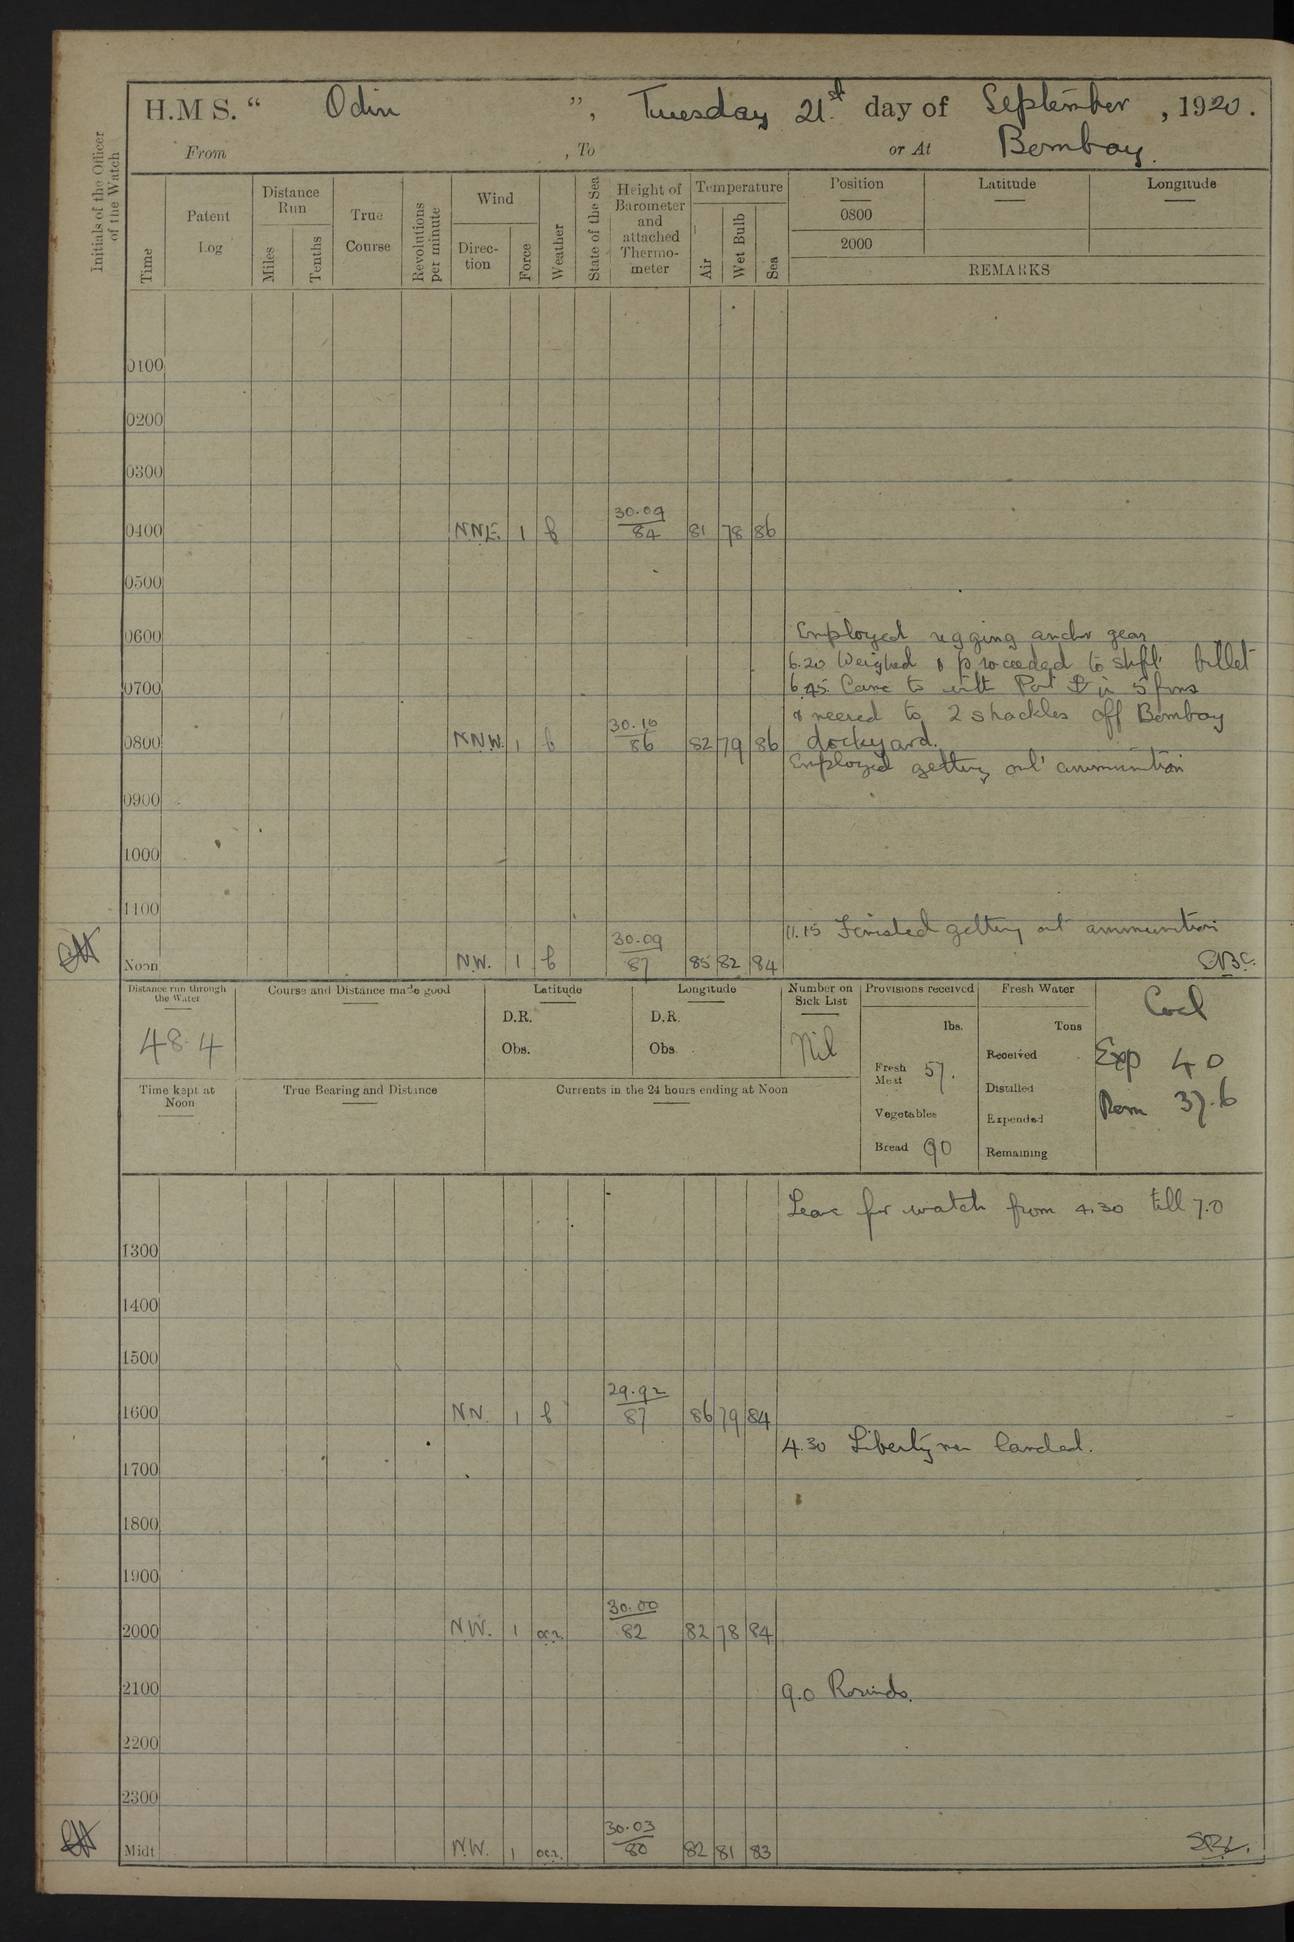 H.M S. “ Odin ”, Tuesday 21st day of September , 1920 .
From , To or At Bombay.
Initials of the Officer of the Watch
Time
Patent Log
Distance Run
Miles
Tenths
True Course
Revolutions per minute
Wind
Direc-tion
Force
Weather
State of the Sea
Height of Barometer and attached Thermo-meter
Temperature
Air
Wet Bulb
Sea
Position Latitude Longitude
0800
2000
REMARKS
0100
0200
0300
0400 NNE. 1 b 30.09 84 81 78 86
0500
0600 Employed rigging anchr gear
6.20 Weighed & proceeded to shift billet
0700 6.45. Came to with Port ⚓ in 5 fms
& veered to 2 shackles off Bombay
0800 NNW. 1 b 30.10 86 82 79 86 dockyard.
Employed getting out ammunition
0900
1000
1100
11.15 Finished getting out ammunition
Noon NW. 1 b 30.09 87 85 82 84
Distance run through the Water
48.4
Course and Distance made good
Latitude
D.R.
Obs.
Longitude
D.R.
Obs
Number on Sick List
Nil
Provisions received
lbs.
Fresh Meat 57.
Vegetables
Bread 90
Fresh Water
Tons
Received
Distilled
Expended
Remaining
Coal
Exp 40
Rem 37.6
Time kept at Noon
True Bearing and Distance
Currents in the 24 hours ending at Noon
Leave for watch from 4.30 till 7.0
1300
1400
1500
1600 NN. 1 b 29.92 87 86 79 84
4.30 Liberty men landed.
1700
1800
1900
2000 NW. 1 82 82 78 84
30.00
2100 9.0 Rounds.
2200
2300
Midt NW. 1 30.03 80 82 81 83